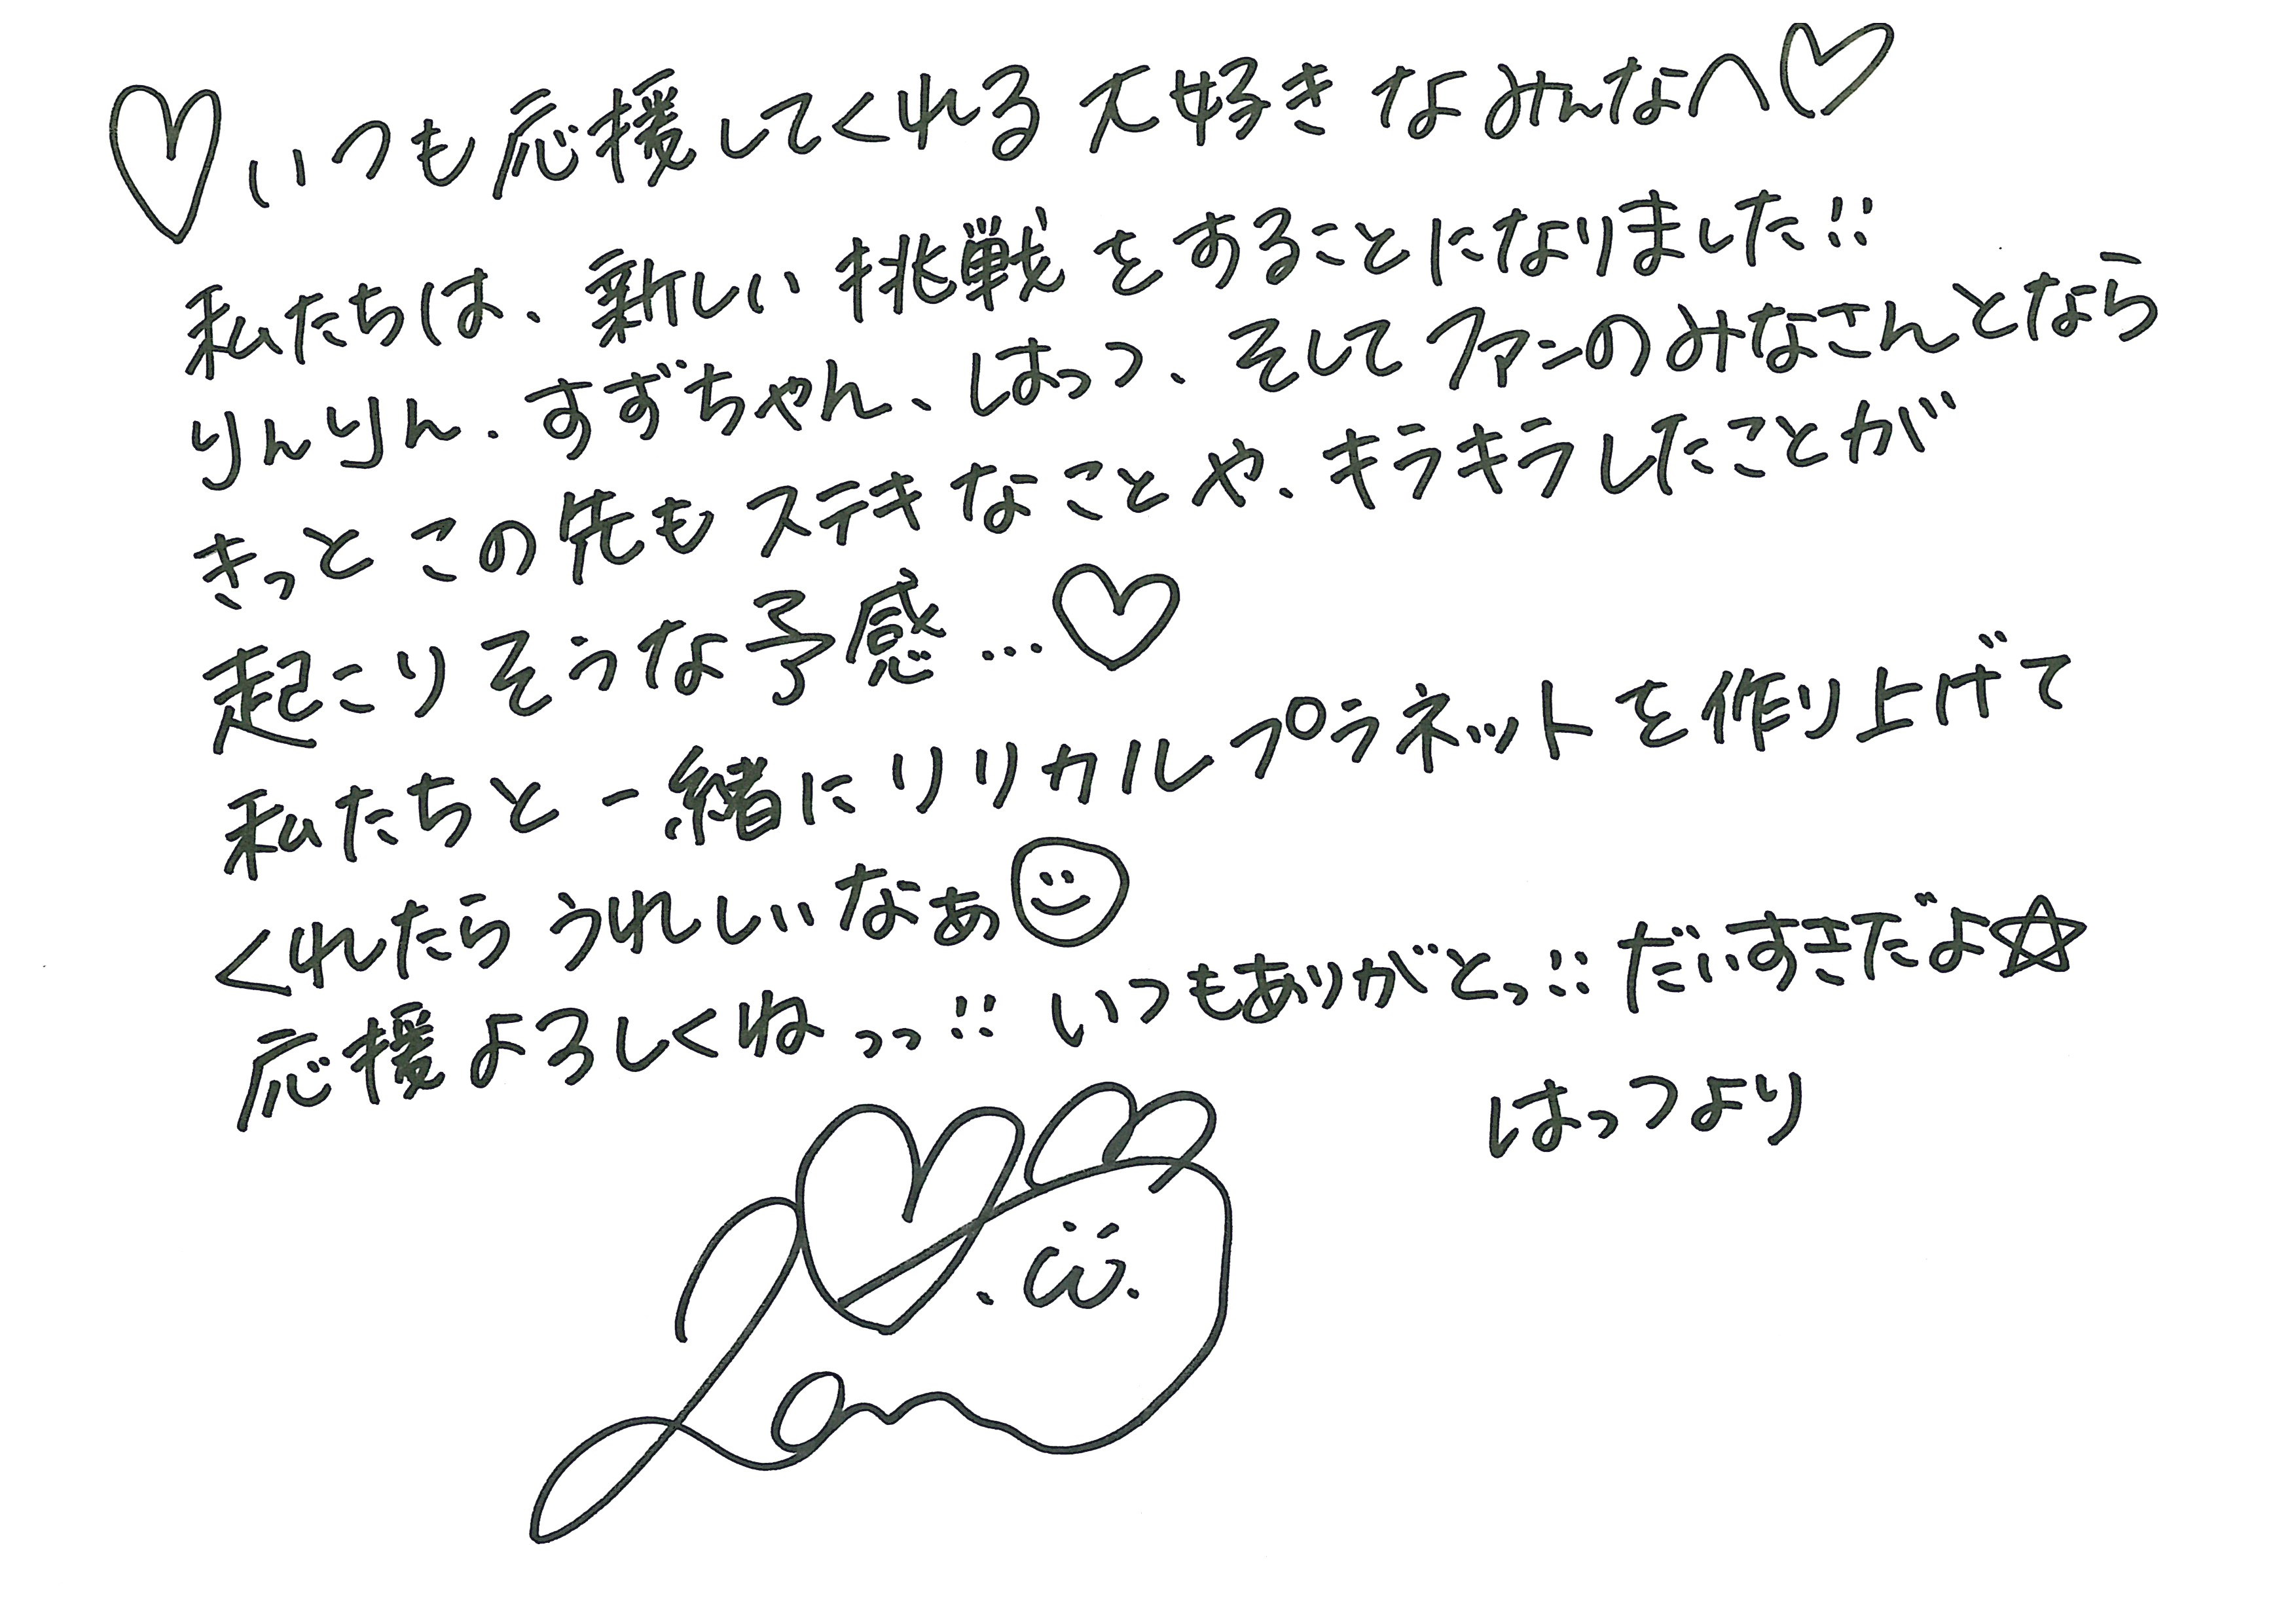 ♡いつも応援してくれる大好きなみんなへ♡
私たちは、新しい挑戦をすることになりました!!
りんりん、すずちゃん、はっつ、そしてファンのみなさんとなら
きっとこの先もステキなことや、キラキラしたことが
起こりそうな予感…♡
私たちと一緒にリリカルプラネットを作り上げて
くれたらうれしいなぁ☺
応援よろしくねっっ!! いつもありがとっ!! だいすきだよ☆
はっつより